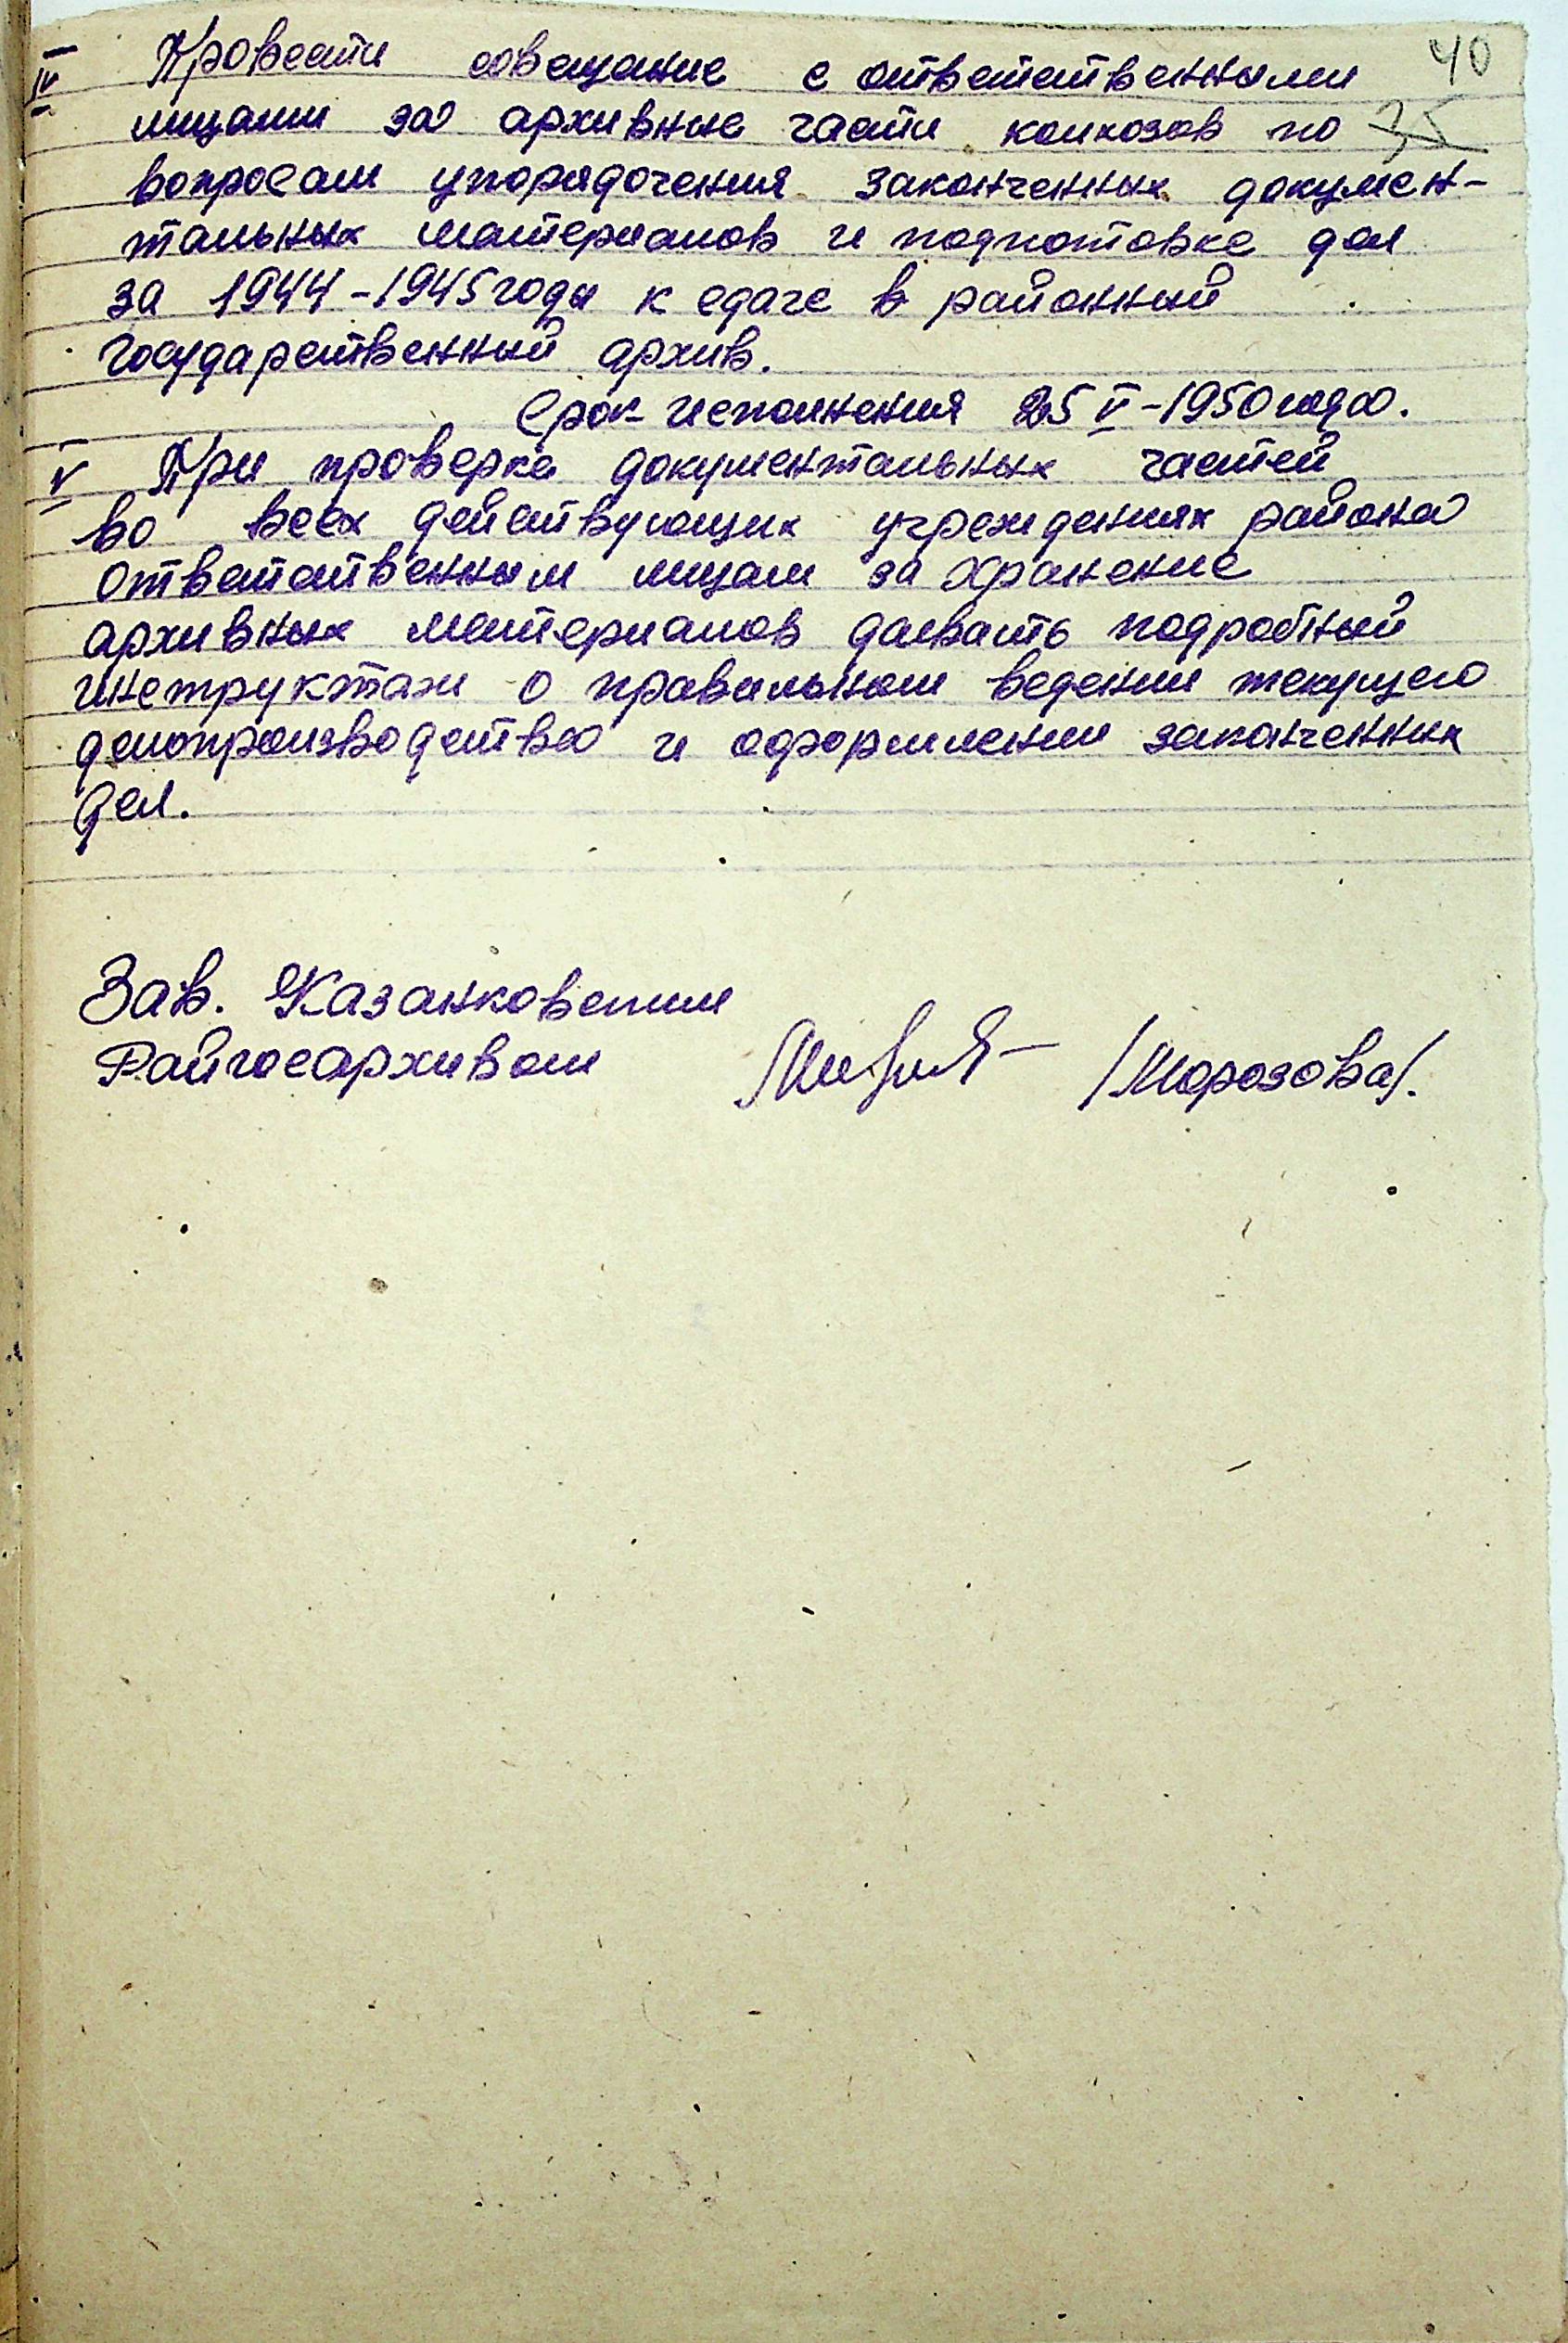 40
IV Провести совещание с ответственными
лицами за архивные части колхозов по 35
вопросам упорядочения законченных докумен-
тальных материалов и подготовке дел
за 1944-1945 годы к сдаче в районный
государственный архив.
Срок исполнения 25 V-1950 года.
V При проверке документальных частей
во всех действующих учреждениях района
ответственным лицам за хранение
архивных материалов давать подробный
инструктаж о правильном ведении текущего
делопроизводства и оформлении законченных
дел.
Зав. Казанковским
Райгосархивом /Морозова/.